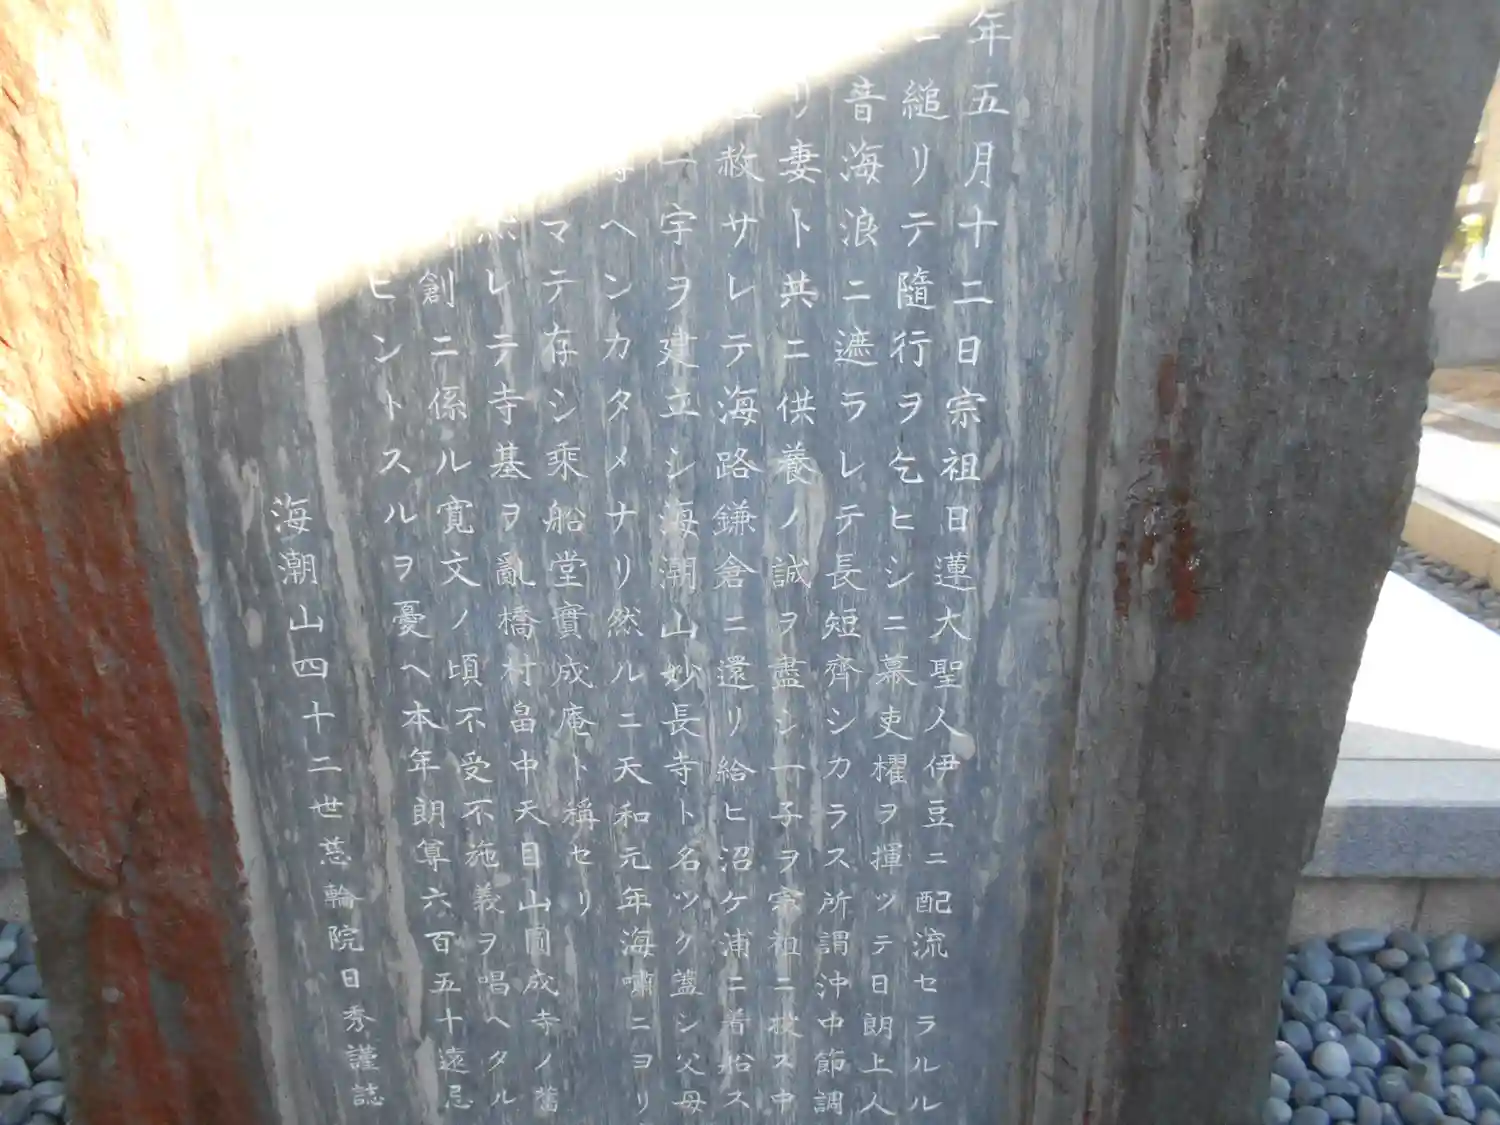 年五月十二日宗祖日蓮大聖人伊豆ニ配流セラルル
ニ縋リテ隨行ヲ乞ヒシニ幕吏櫂ヲ揮ツテ日朗上人
音海浪ニ遮ラレテ長短齊シカラス所謂沖中節調
リ妻ト共ニ供養ノ誠ヲ盡シ一子ヲ宗祖ニ投ス中
赦サレテ海路鎌倉ニ還リ給ヒ沼ケ浦ニ着船ス
一宇ヲ建立シ海潮山妙長寺ト名ツク蓋シ父母
ヘンカタメナリ然ルニ天和元年海嘯ニヨリ
マテ存シ乘船堂實成庵ト稱セリ
レテ寺基ヲ亂橋村畠中天目山圓成寺ノ舊
創ニ係ル寛文ノ頃不受不施義ヲ唱ヘタル
ヒントスルヲ憂ヘ本年朗尊六百五十遠忌
海潮山四十二世慈輪院日秀謹誌